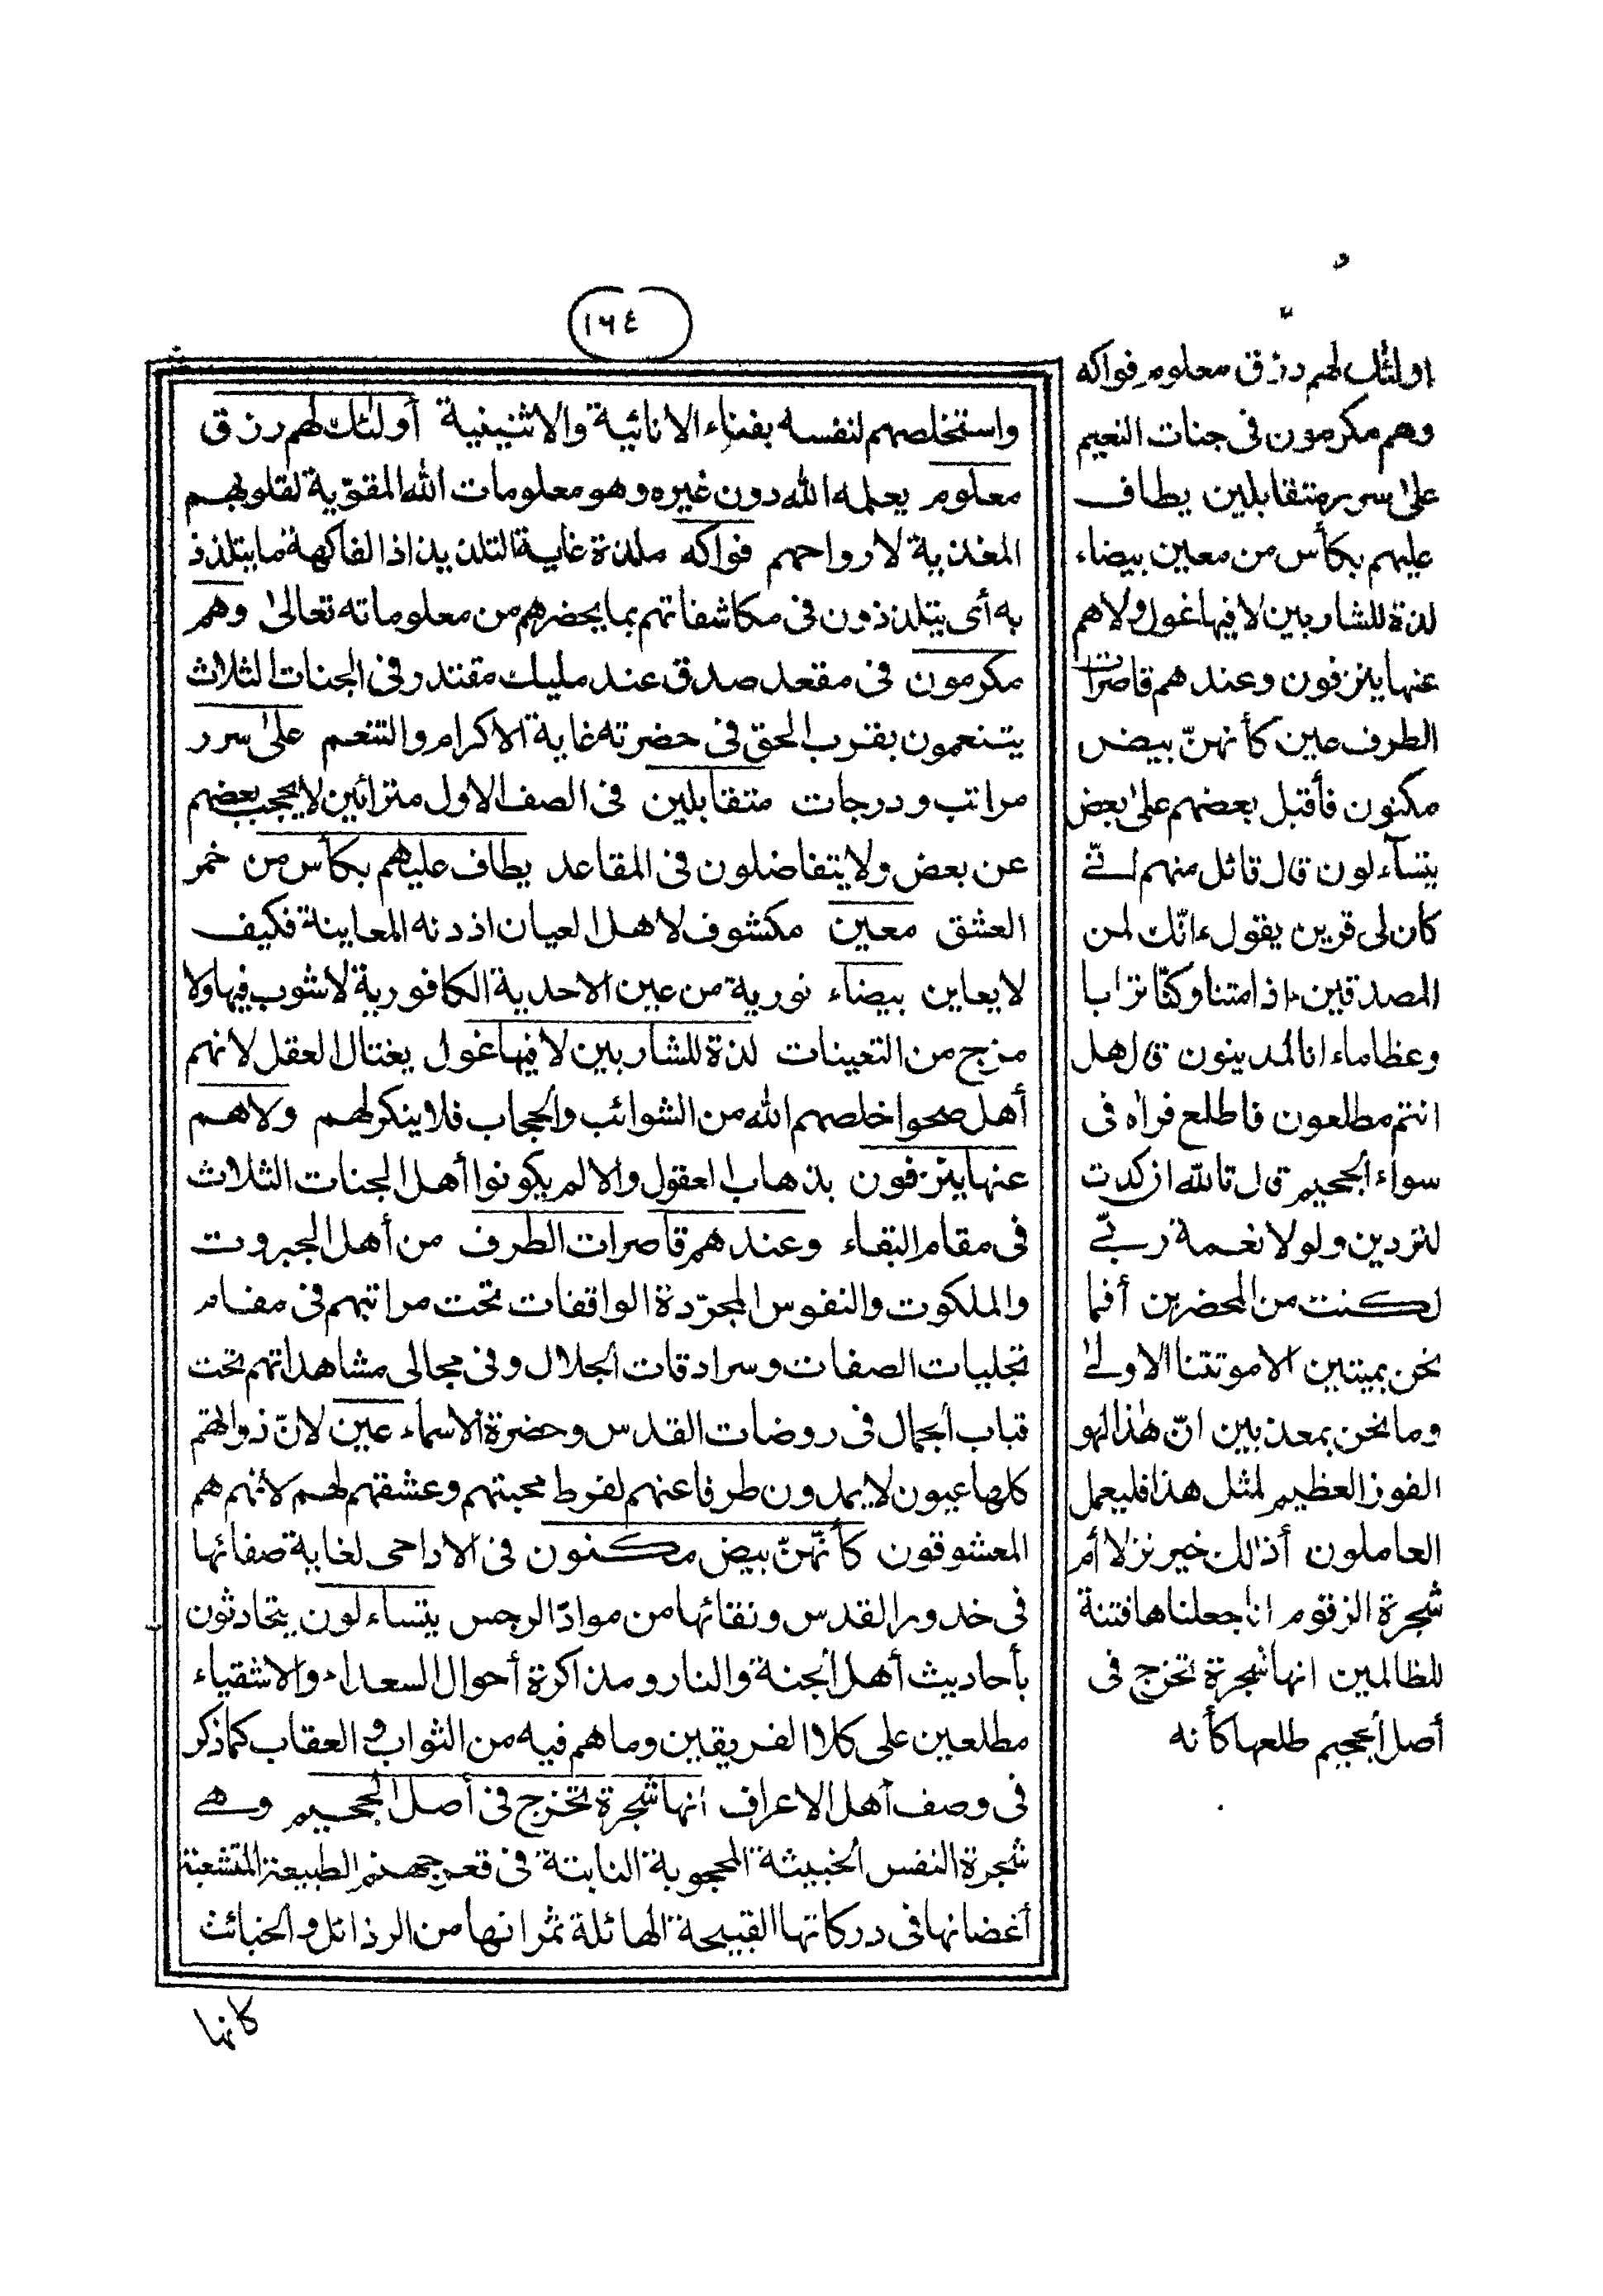 ١٦٤
اولئك لهم رزق معلوم فواكه
وهم مكرمون فى جنات النعيم
على سرر متقابلين يطاف
عليهم بكأس من معين بيضاء
لذة للشاربين لا فيها غول ولا هم
عنها ينزفون وعندهم قاصرات
الطرف عين كأنهنّ بيض
مكنون فأقبل بعضهم على بعض
يتسآءلون قال قائل منهم انّى
كان لى قرين يقول ءانّك لمن
المصدقين ءاذا متنا وكنّا ترابا
وعظاما ءانا لمدينون قال هل
انتم مطلعون فاطلع فرآه فى
سواء الجحيم قال تالله ان كدت
لتردين ولولا نعمة ربّى
لكنت من المحضرين أفما
نحن بميتين الا موتتنا الاولى
وما نحن بمعذبين انّ هذا لهو
الفوز العظيم لمثل هذا فليعمل
العاملون أذلك خير نزلا أم
شجرة الزقوم انا جعلناها فتنة
للظالمين انها شجرة تخرج فى
أصل الجحيم طلعها كأنه
واستخلصهم لنفسه بفناء الانائية والاثنينية أولئك لهم رزق
معلوم يعلمه الله دون غيره وهو معلومات الله المقوّية لقلوبهم
المغذية لارواحهم فواكه ملذة غاية التلذيذ اذ الفاكهة ما يتلذذ
به أى يتلذذون فى مكاشفاتهم بما يحضرهم من معلوماته تعالى وهم
مكرمون فى مقعد صدق عند مليك مقتدر وفى الجنات الثلاث
يتنعمون بقرب الحق فى حضرته غاية الاكرام والتنعم على سرر
مراتب ودرجات متقابلين فى الصف الاول مترائين لا يحجب بعضهم
عن بعض ولا يتفاضلون فى المقاعد يطاف عليهم بكأس من خمر
العشق معين مكشوف لاهل العيان اذ دنه المعاينة فكيف
لا يعاين بيضاء نورية من عين الاحدية الكافورية لا شوب فيها ولا
مزج من التعينات لذة للشاربين لا فيها غول يغتال العقل لانهم
أهل صحو اخلصهم الله من الشوائب والحجاب فلا ينكر لهم ولا هم
عنها ينزفون بذهاب العقول والا لم يكونوا أهل الجنات الثلاث
فى مقام البقاء وعندهم قاصرات الطرف من أهل الجبروت
والملكوت والنفوس المجرّدة الواقفات تحت مراتبهم فى مقام
تجليات الصفات وسرادقات الجلال وفى مجالى مشاهداتهم تحت
قباب الجمال فى روضات القدس وحضرة الاسماء عين لانّ ذواتهم
كلها عيون لا يمدون طرفا عنهم لفرط محبتهم وعشقهم لهم لانهم هم
المعشوقون كأنّهنّ بيض مكنون فى الاداحى لغاية صفائها
فى خدور القدس ونقائها من موادّ الرجس يتساءلون يتحادثون
بأحاديث أهل الجنة والنار ومذاكرة أحوال السعداء والاشقياء
مطلعين على كلا الفريقين وما هم فيه من الثواب والعقاب كما ذكر
فى وصف أهل الاعراف انها شجرة تخرج فى أصل الجحيم وهى
شجرة النفس الخبيثة المحجوبة النابتة فى قعر جهنم الطبيعة المتشعبة
أغصانها فى دركاتها القبيحة الهائلة ثمراتها من الرذائل والخبائث
كانها